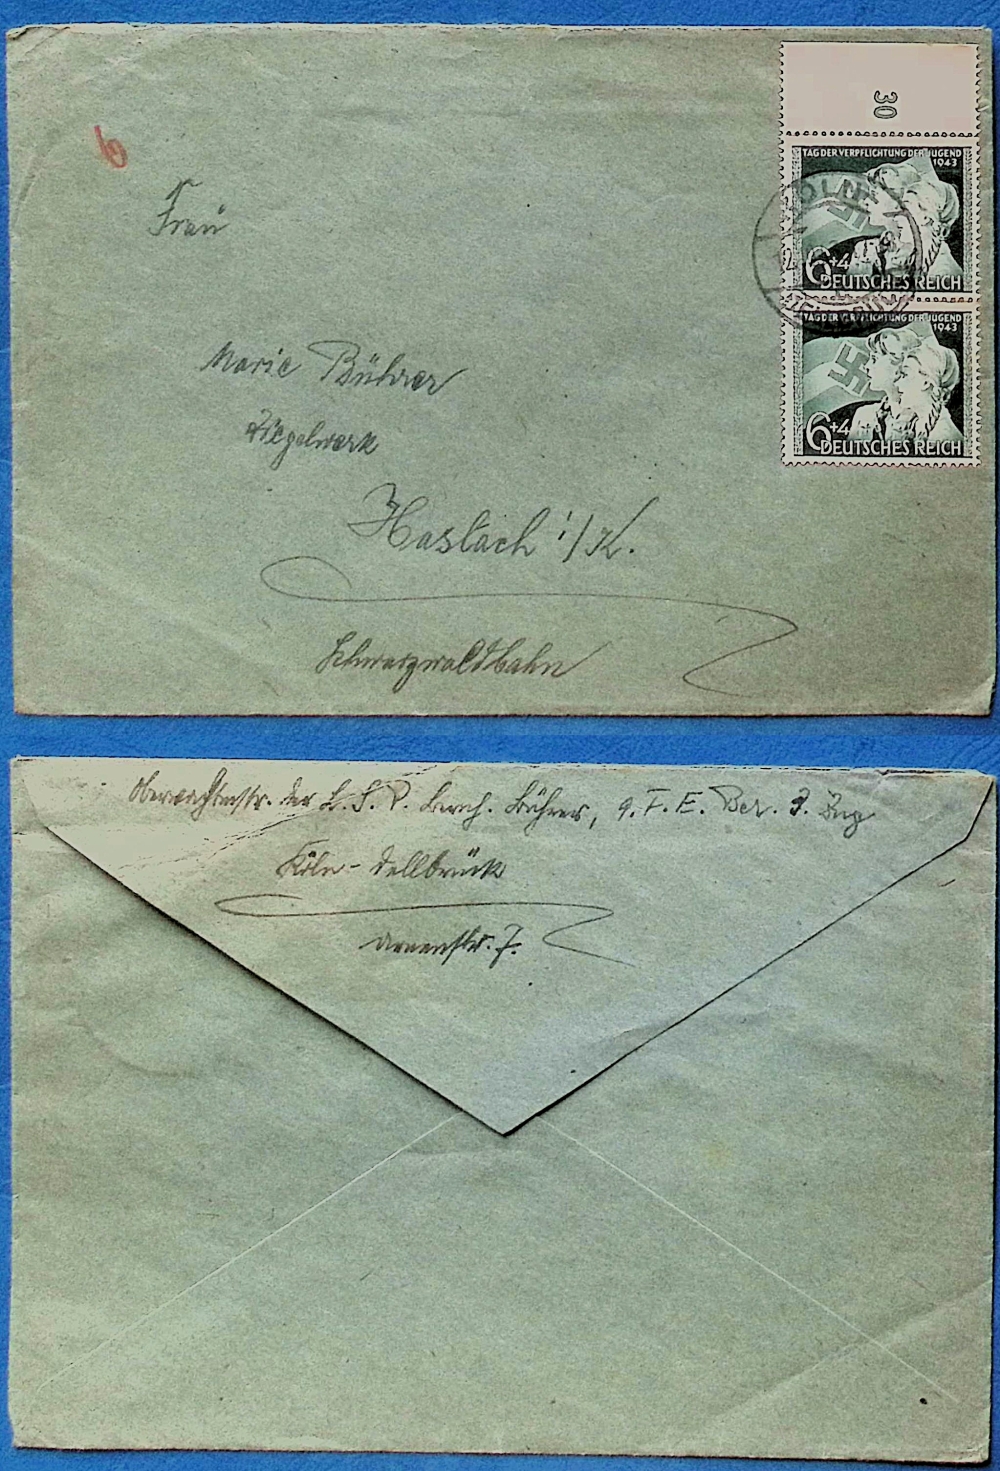 6
30
TAG DER VERPFLICHTUNG DER JUGEND
1943
6+4
DEUTSCHES REICH
KÖLN
TAG DER VERPFLICHTUNG DER JUGEND
1943
6+4
DEUTSCHES REICH
Frau
Marie Bührer
Ziegelwerk
Haslach i/K.
Schwarzwaldbahn
Oberwachtmstr. der L. S. P. Bührer, 9. F. E. Ber. 3. Zug
Köln-Dellbrück